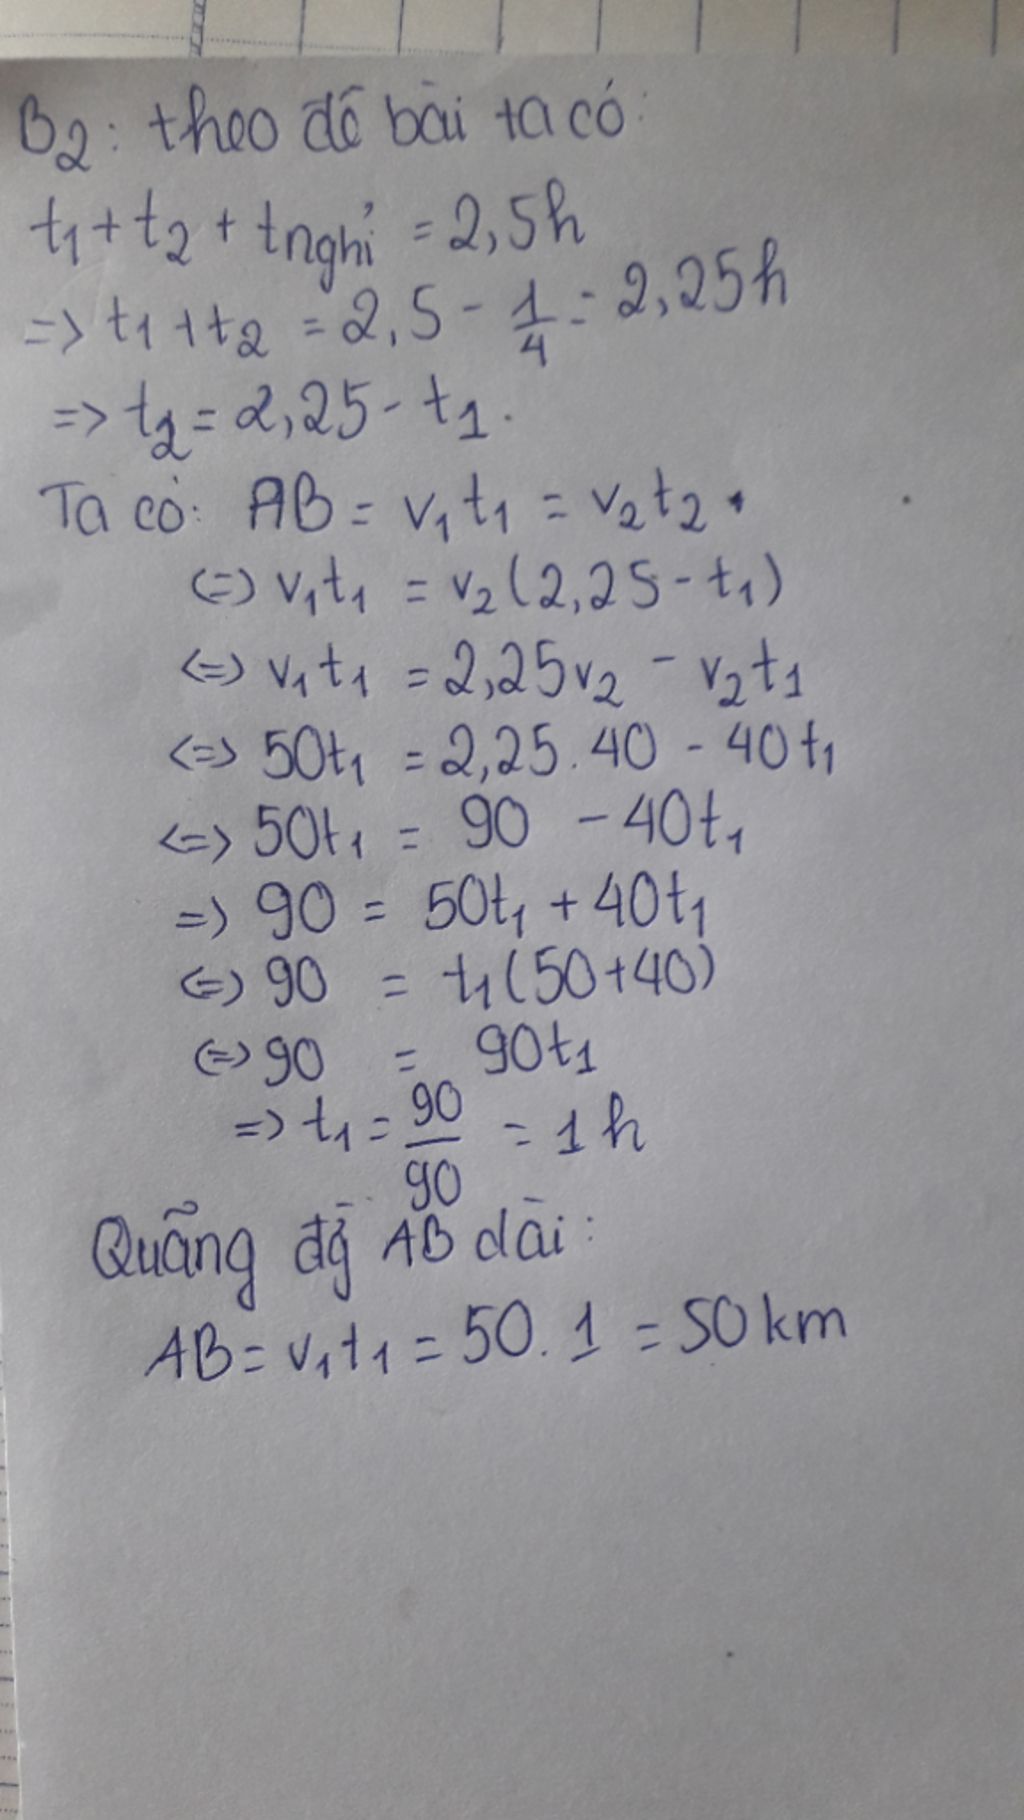 B2: theo đề bài ta có:
t1 + t2 + tnghỉ = 2,5h
=> t1 + t2 = 2,5 - 1/4 = 2,25h
=> t2 = 2,25 - t1.
Ta có: AB = v1t1 = v2t2.
<=> v1t1 = v2(2,25 - t1)
<=> v1t1 = 2,25v2 - v2t1
<=> 50t1 = 2,25.40 - 40t1
<=> 50t1 = 90 - 40t1
=> 90 = 50t1 + 40t1
<=> 90 = t1(50+40)
<=> 90 = 90t1
=> t1 = 90/90 = 1h
Quãng đg̀ AB dài:
AB = v1t1 = 50.1 = 50km